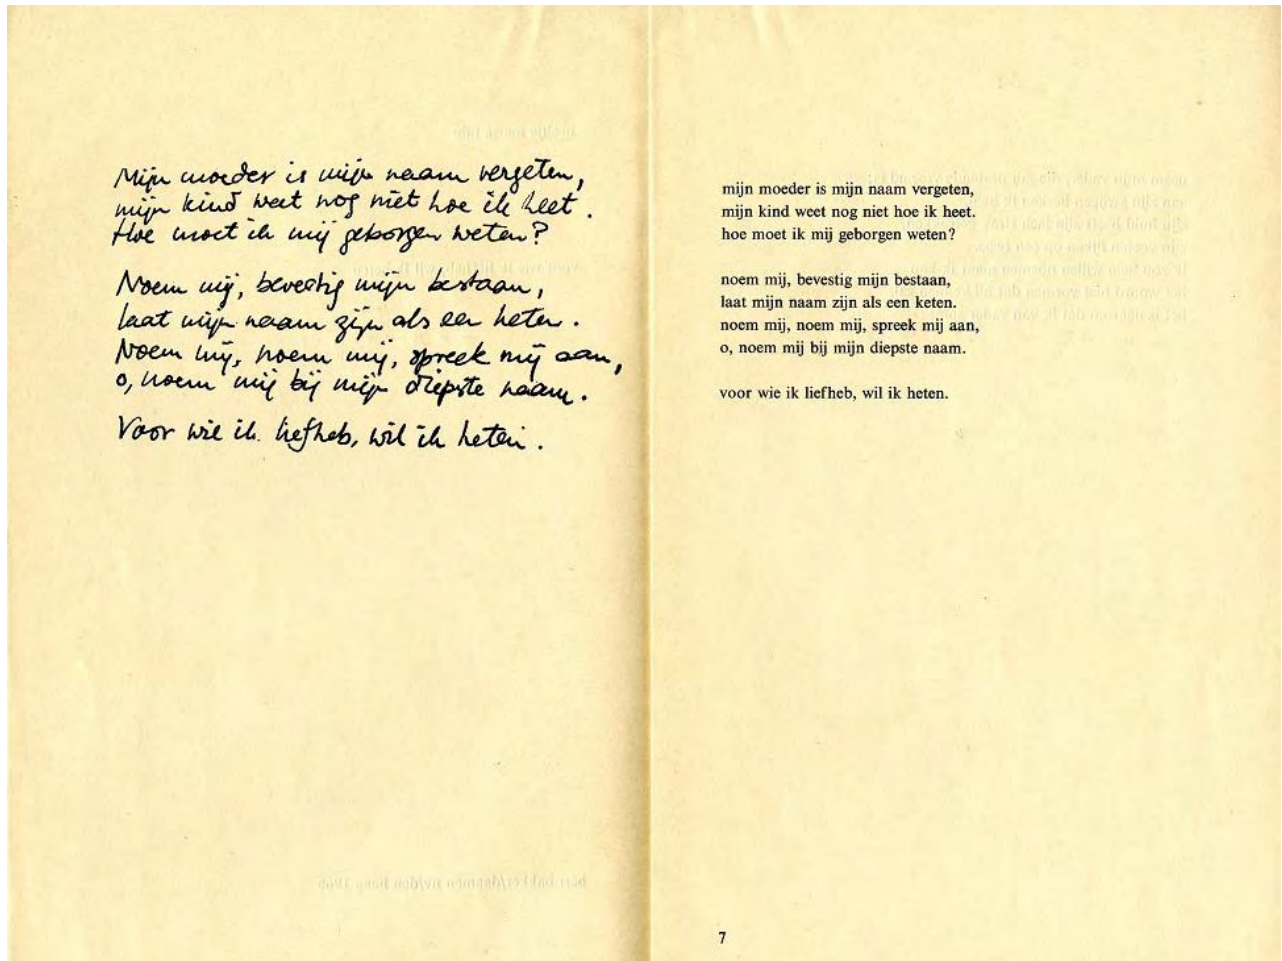 Mijn moeder is mijn naam vergeten,
mijn kind weet nog niet hoe ik heet.
Hoe moet ik mij geborgen weten?
Noem mij, bevestig mijn bestaan,
laat mijn naam zijn als een keten.
Noem mij, noem mij, spreek mij aan,
o, noem mij bij mijn diepste naam.
Voor wie ik liefheb, wil ik heten.
mijn moeder is mijn naam vergeten,
mijn kind weet nog niet hoe ik heet.
hoe moet ik mij geborgen weten?
noem mij, bevestig mijn bestaan,
laat mijn naam zijn als een keten.
noem mij, noem mij, spreek mij aan,
o, noem mij bij mijn diepste naam.
voor wie ik liefheb, wil ik heten.
7